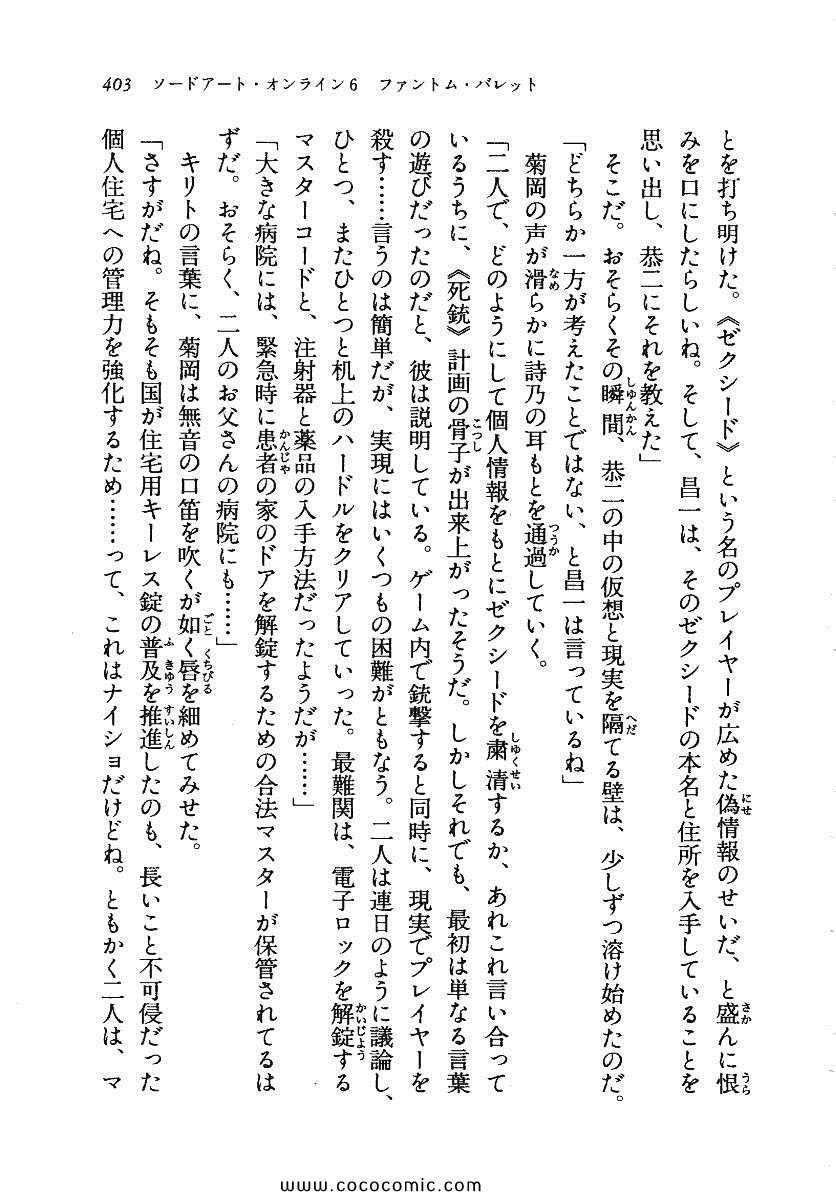 403 ソードアート・オンライン6 ファントム・バレット
とを打ち明けた。《ゼクシード》という名のプレイヤーが広めた偽情報のせいだ、と盛んに恨
みを口にしたらしいね。そして、昌一は、そのゼクシードの本名と住所を入手していることを
思い出し、恭二にそれを教えた」
そこだ。おそらくその瞬間、恭二の中の仮想と現実を隔てる壁は、少しずつ溶け始めたのだ。
「どちらか一方が考えたことではない、と昌一は言っているね」
菊岡の声が滑らかに詩乃の耳もとを通過していく。
「二人で、どのようにして個人情報をもとにゼクシードを粛清するか、あれこれ言い合って
いるうちに、《死銃》計画の骨子が出来上がったそうだ。しかしそれでも、最初は単なる言葉
の遊びだったのだと、彼は説明している。ゲーム内で銃撃すると同時に、現実でプレイヤーを
殺す……言うのは簡単だが、実現にはいくつもの困難がともなう。二人は連日のように議論し、
ひとつ、またひとつと机上のハードルをクリアしていった。最難関は、電子ロックを解錠する
マスターコードと、注射器と薬品の入手方法だったようだが……」
「大きな病院には、緊急時に患者の家のドアを解錠するための合法マスターが保管されてるは
ずだ。おそらく、二人のお父さんの病院にも……」
キリトの言葉に、菊岡は無音の口笛を吹くが如く唇を細めてみせた。
「さすがだね。そもそも国が住宅用キーレス錠の普及を推進したのも、長いこと不可侵だった
個人住宅への管理力を強化するため……って、これはナイショだけどね。ともかく二人は、マ
www.cococomic.com